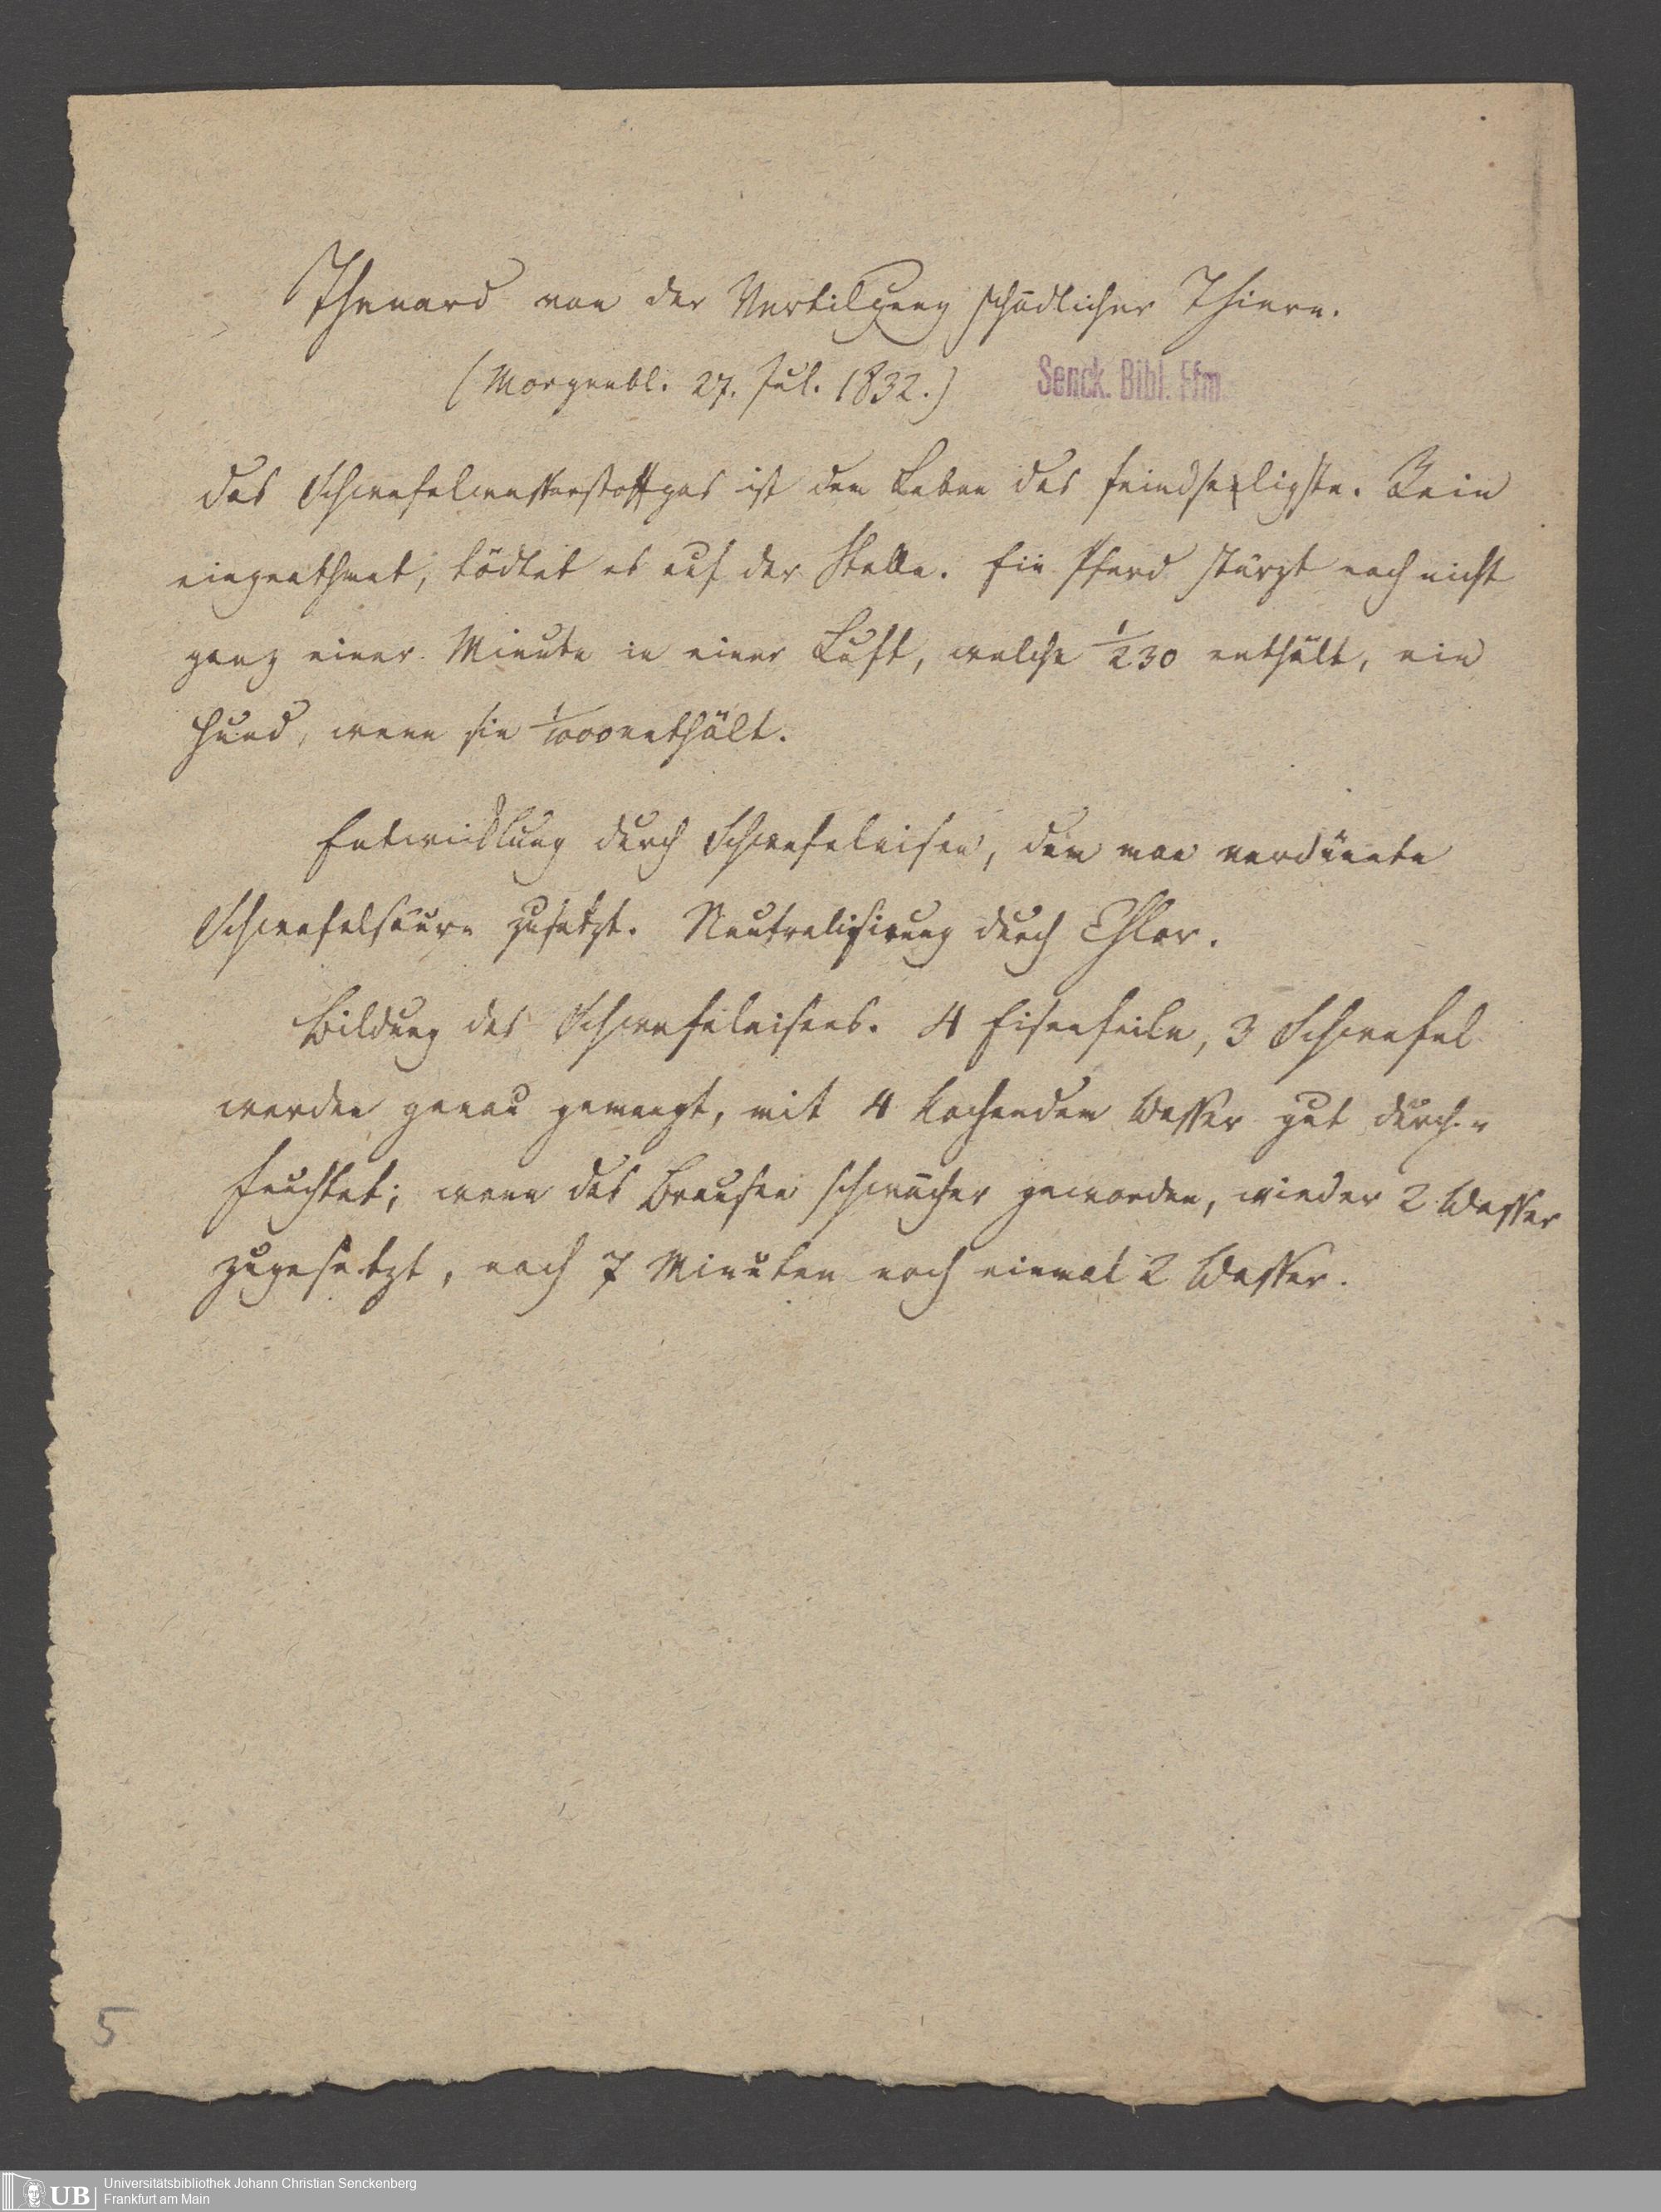 Thenard von der Vertilgung schädlicher Thiere.
(Morgenbl. 27. Jul. 1832.)
Senck. Bibl. Ffm.
das Schwefelwasserstoffgas ist dem Leben das feindseeligste. Rein
eingeathmet, tödtet es auf der Stelle. Ein Pferd stürzt nach nicht
ganz einer Minute in einer Luft, welche 1/230 enthält, ein
Hund, wenn sie 1/1000 enthält.
Entwicklung durch Schwefeleisen, dem man verdünnte
Schwefelsäure zusetzt. Neutralisirung durch Chlor.
Bildung des Schwefeleisens. 4 Eisenfeile, 3 Schwefel
werden genau gemengt, mit 4 kochendem Wasser gut durch-
feuchtet; wenn das Brausen schwächer geworden, wieder 2 Wasser
zugesetzt, nach 7 Minuten noch einmal 2 Wasser.
5
UB
Universitätsbibliothek Johann Christian Senckenberg
Frankfurt am Main